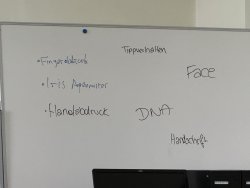 Tippverhalten
• Fingerabdruck
Face
• Iris Abmuster
• Handabdruck
DNA
Handschrift